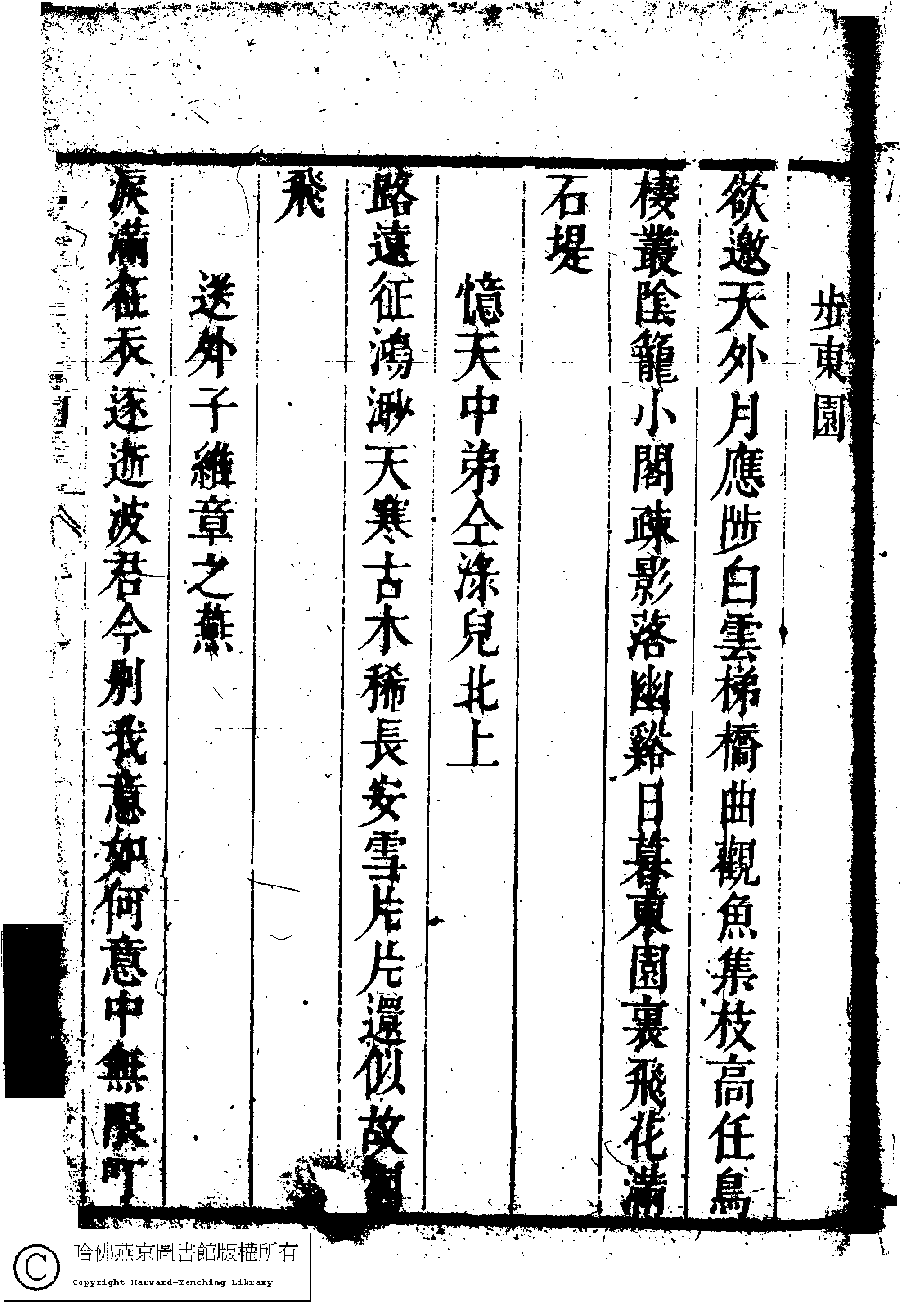 步東園
欲邀天外月應陟白雲梯橋曲觀魚集枝高任鳥
棲叢陰籠小閣疎影落幽谿日暮東園裏飛花滿
石堤
憶天中弟仝滌兒北上
路遠征鴻渺天寒古木稀長安雪片片還似故園
飛
送外子維章之燕
淚滿征衣逐逝波君今別我意如何意中無限叮
哈佛燕京圖書館版權所有
Copyright Harvard-Yenching Library